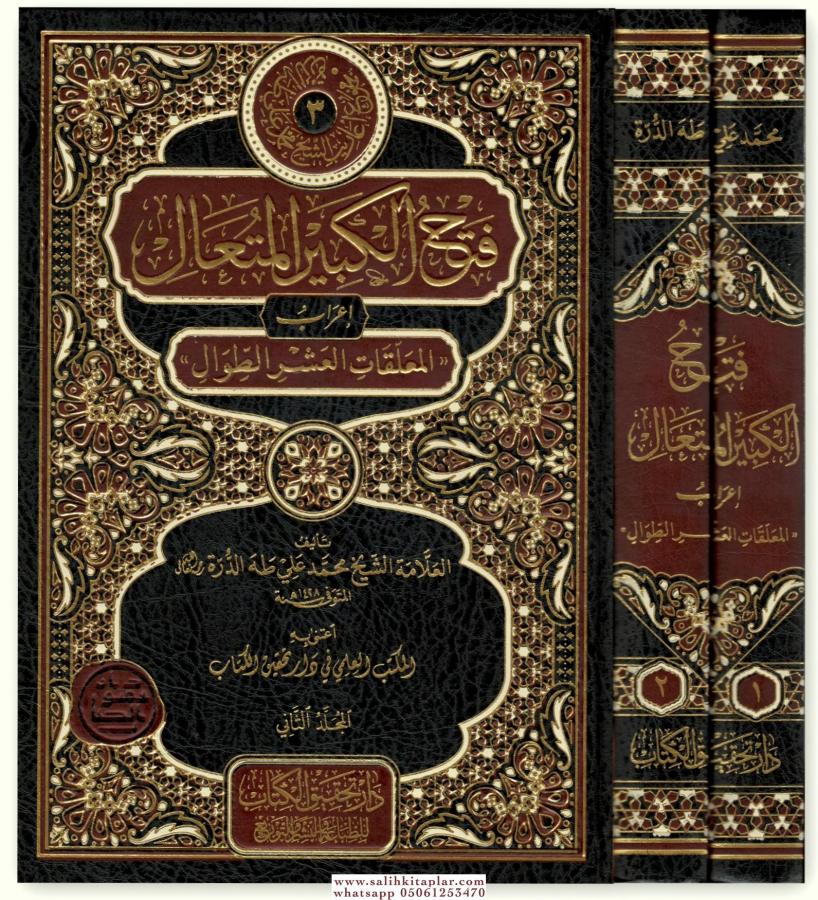 ٣
فَتْحُ الْكَبِيرِ الْمُتَعَالِ
إِعْرَابُ
«المُعَلَّقَاتِ العَشْرِ الطِّوَالِ»
تَأليفُ
العَلَّامَة الشَّيْخ مُحَمَّد عَلِي طَهَ الدُّرَة
المتوفى سنة
اعتنى به
المكتب العلمي في دار تحقيق الكتاب
المُجَلَّد الثَّاني
دار تحقيق الكتاب
للطباعة والنشر والتوزيع
محمَّد عَلي طَهَ الدُّرَة
فَتْحُ
الْكَبِيرِ الْمُتَعَالِ
إِعْرَابُ
«المُعَلَّقَاتِ العَشْرِ الطِّوَالِ»
٢
١
دار تحقيق الكتاب
www.salihkitaplar.com
whatsapp 05061253470